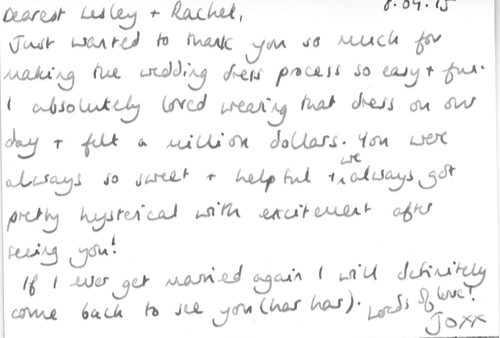 Dearest Lesley + Rachel, 8.09.15
Just wanted to thank you so much for
making the wedding dress process so easy + fun.
I absolutely loved wearing that dress on our
day + felt a million dollars. You were
always so sweet + helpful + we always got
pretty hysterical with excitement after
seeing you!
If I ever get married again I will definitely
come back to see you (har har). Loads of love!
Joxx